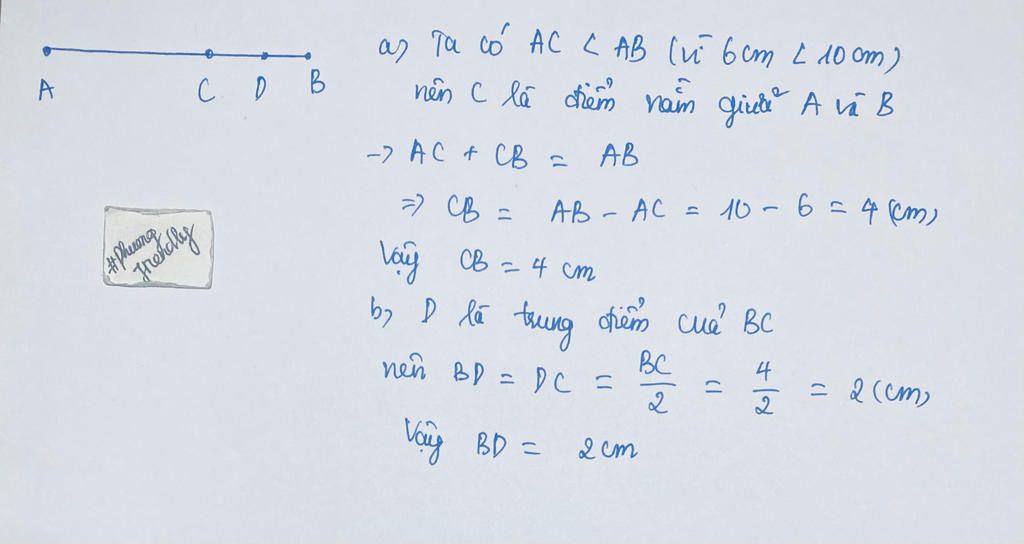 A C D B
a) Ta có AC < AB (vì 6cm < 10cm)
nên C là điểm nằm giữa A và B
-> AC + CB = AB
=> CB = AB - AC = 10 - 6 = 4 (cm)
Vậy CB = 4 cm
b) D là trung điểm của BC
nên BD = DC = BC/2 = 4/2 = 2 (cm)
Vậy BD = 2cm
#Phuong
friendly